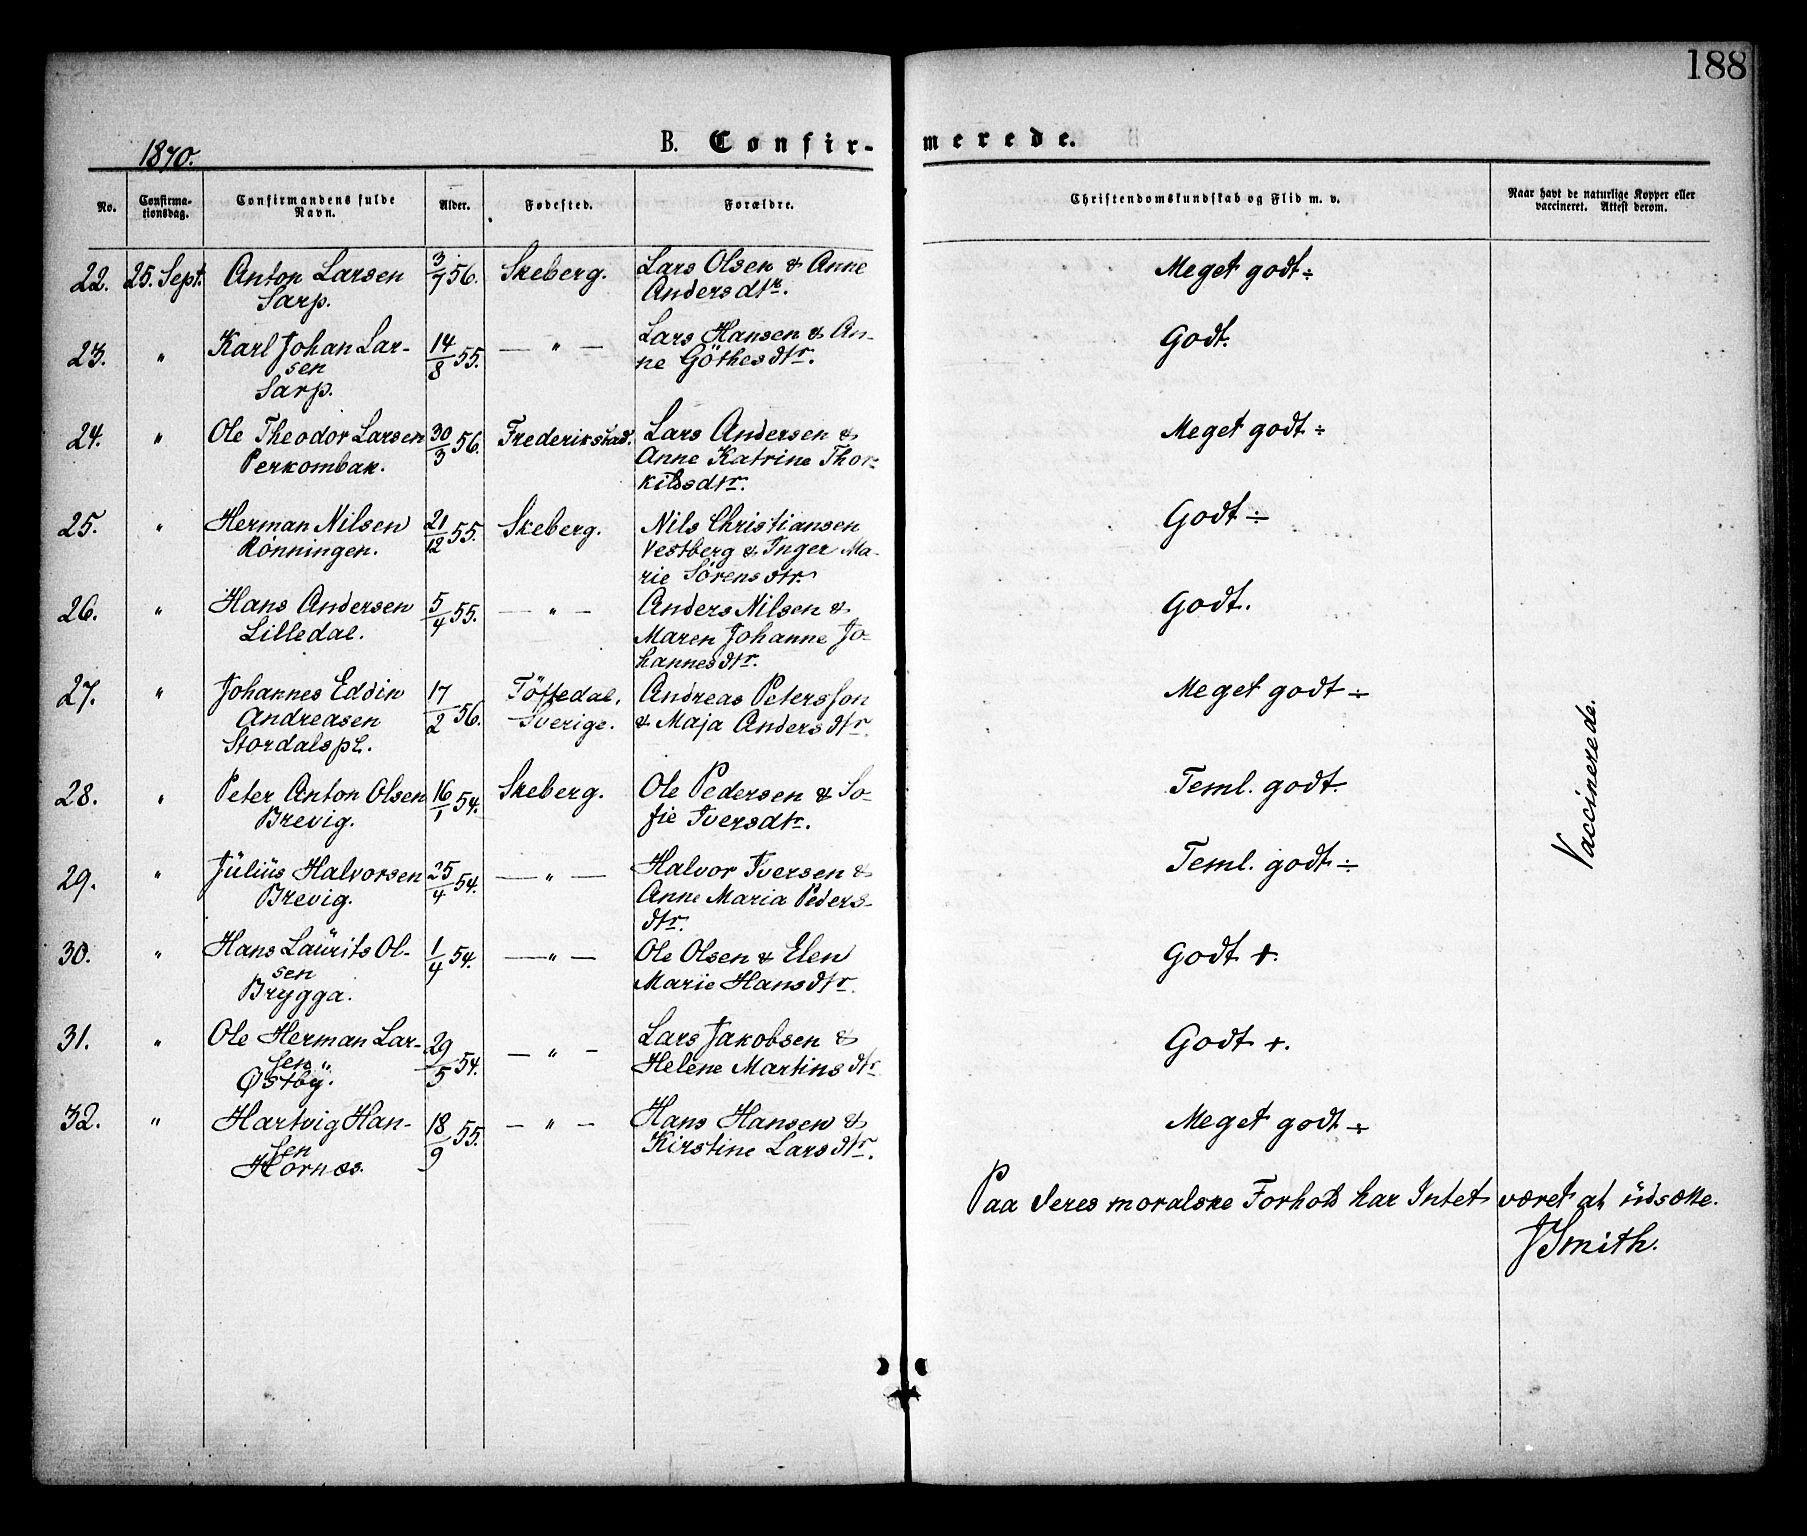 188
1870.
B. Confir-
merede.
No.
Confirma-
tionsdag.
Confirmandens fulde
Navn.
Alder.
Fødested.
Forældre.
Christendomskundskab og Flid m. v.
Naar havt de naturlige Kopper eller
vaccineret. Attest derom.
22. 25. Sept. Anton Larsen 3/7 56. Skeberg. Lars Olsen & Anne Meget godt ÷
Sarp. Andersdtr.
23. " Karl Johan Lar- 14/8 55. — " — Lars Hansen & An- Godt.
sen ne Göthesdtr.
Sarp.
24. " Ole Theodor Larsen 30/3 56. Frederikstad. Lars Andersen & Meget godt ÷
Perkombak. Anne Katrine Thor-
kildsdtr.
25. " Herman Nilsen 21/12 55. Skeberg. Nils Christiansen Godt ÷
Rønningen. Vestberg & Inger Ma-
rie Sörensdtr.
26. " Hans Andersen 5/4 55. — " — Anders Nilsen & Godt.
Lilledal. Maren Johanne Jo-
hannesdtr.
27. " Johannes Eddin 17/2 56. Töftedal. Andreas Petersson Meget godt ÷
Andreasen Sverige. & Maja Andersdtr.
Stordalspl.
28. " Peter Anton Olsen 16/1 54. Skeberg. Ole Pedersen & So- Teml. godt.
Brevig. fie Iversdtr.
29. " Julius Halvorsen 25/4 54. — " — Halvor Iversen & Teml. godt ÷
Brevig. Anne Maria Peders-
dtr.
30. " Hans Laurits Ol- 1/4 54. — " — Ole Olsen & Elen Godt +.
sen Marie Hansdtr.
Brygga.
31. " Ole Herman Lar- 29/5 54. — " — Lars Jakobsen & Godt +.
sen " Helene Martinsdtr.
Østby.
32. " Hartvig Han- 18/9 55. — " — Hans Hansen & Meget godt ÷
sen Kirstine Larsdtr.
Hornæs.
Vaccinerede.
Paa deres moralske Forhold har Intet været at udsætte.
J Smith.